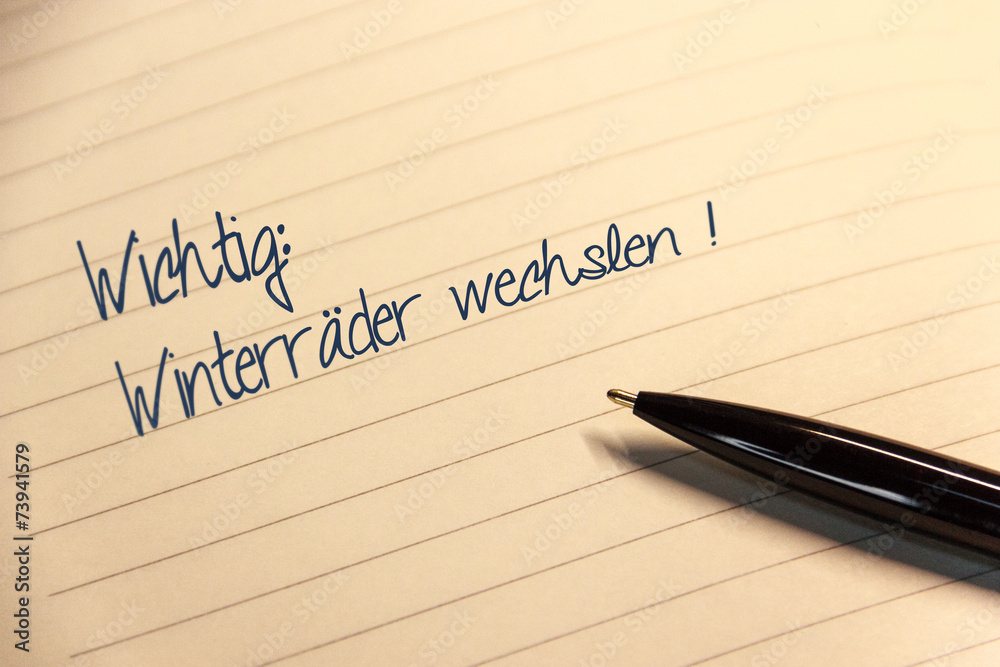 Wichtig:
Winterräder wechslen !
Adobe Stock | #73941579